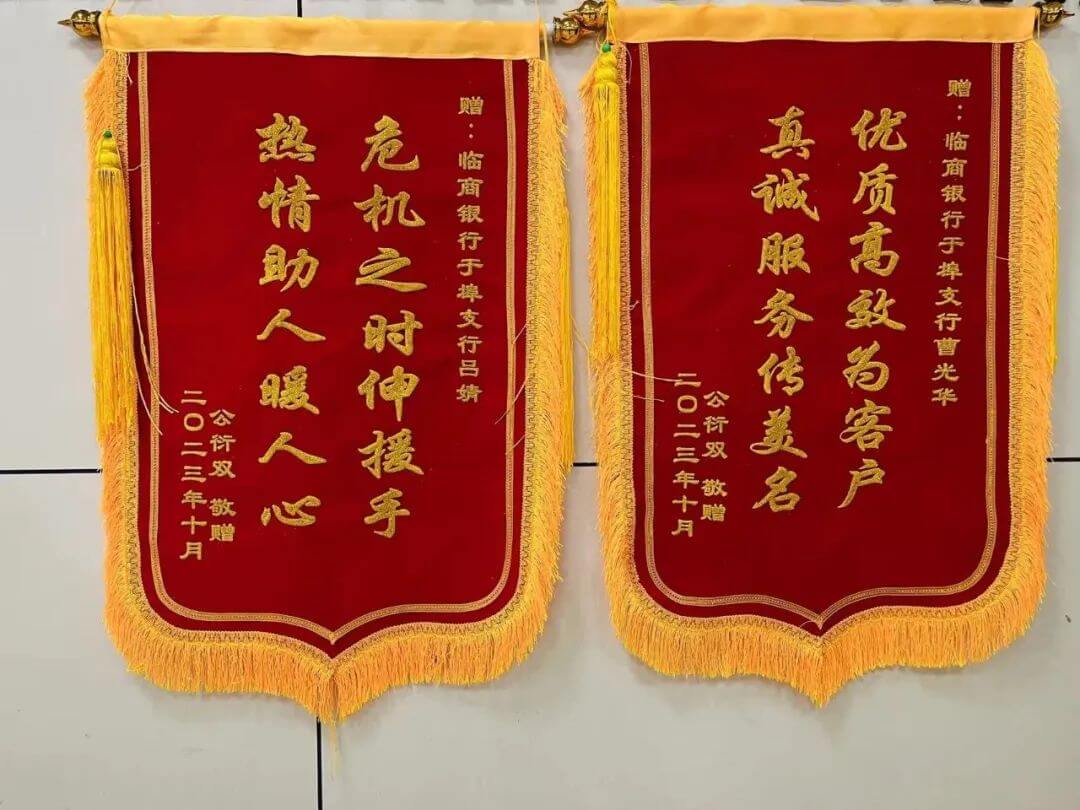 赠：临商银行于埠支行吕婧
危机之时伸援手
热情助人暖人心
公衍双 敬赠
二〇二三年十月
赠：临商银行于埠支行曹光华
优质高效为客户
真诚服务传美名
公衍双 敬赠
二〇二三年十月